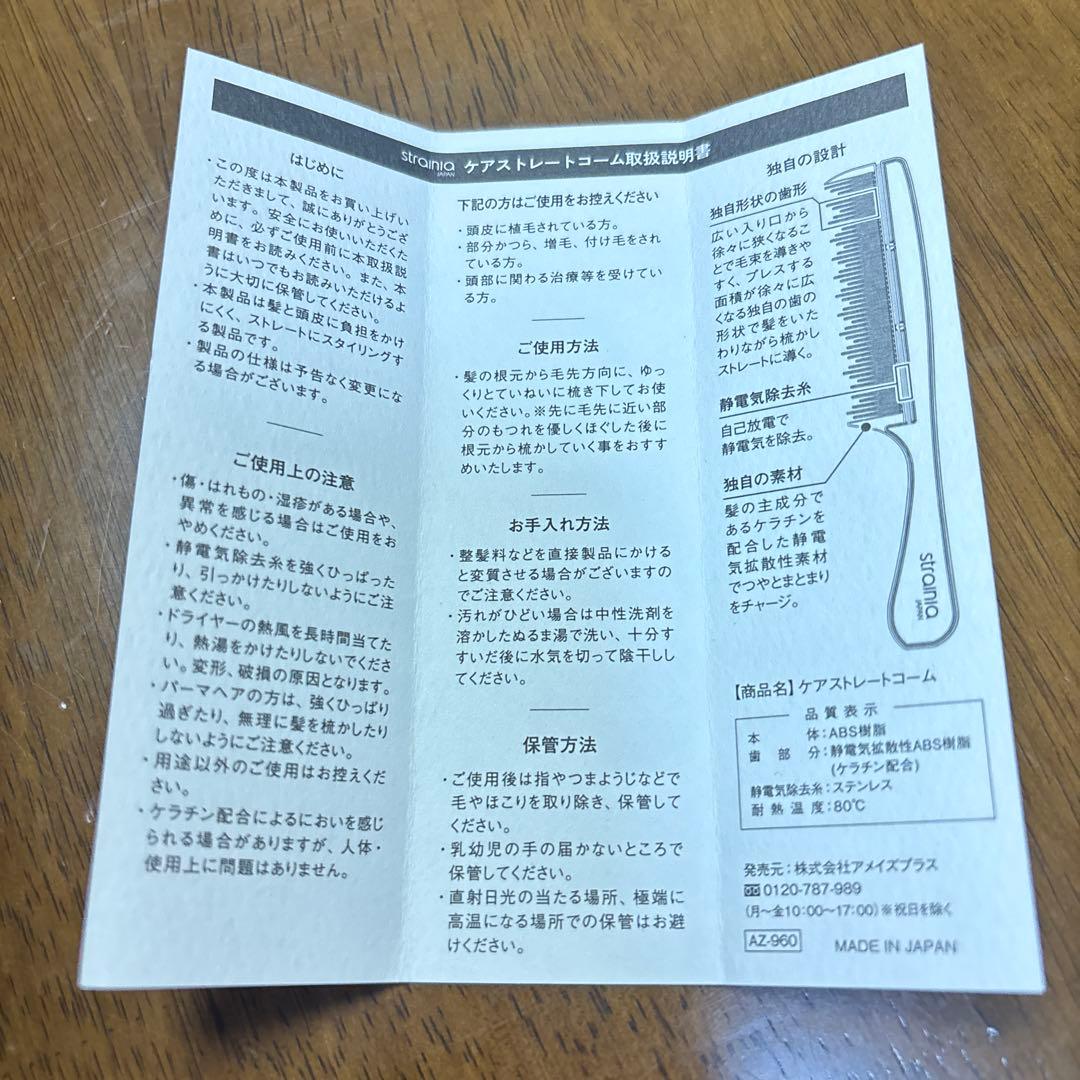 strainia JAPAN ケアストレートコーム取扱説明書
はじめに
・この度は本製品をお買い上げい
ただきまして、誠にありがとうござ
います。安全にお使いいただくた
めに、必ずご使用前に本取扱説
明書をお読みください。また、本
書はいつでもお読みいただけるよ
うに大切に保管してください。
・本製品は髪と頭皮に負担をかけ
にくく、ストレートにスタイリングす
る製品です。
・製品の仕様は予告なく変更にな
る場合がございます。
ご使用上の注意
・傷・はれもの・湿疹がある場合や、
異常を感じる場合はご使用をお
やめください。
・静電気除去糸を強くひっぱった
り、引っかけたりしないようにご注
意ください。
・ドライヤーの熱風を長時間当てた
り、熱湯をかけたりしないでくださ
い。変形、破損の原因となります。
・パーマヘアの方は、強くひっぱり
過ぎたり、無理に髪を梳かしたり
しないようにご注意ください。
・用途以外のご使用はお控えくだ
さい。
・ケラチン配合によるにおいを感じ
られる場合がありますが、人体・
使用上に問題はありません。
下記の方はご使用をお控えください
・頭皮に植毛されている方。
・部分かつら、増毛、付け毛をされ
ている方。
・頭部に関わる治療等を受けてい
る方。
ご使用方法
・髪の根元から毛先方向に、ゆっ
くりとていねいに梳き下してお使
いください。※先に毛先に近い部
分のもつれを優しくほぐした後に
根元から梳かしていく事をおすす
めいたします。
お手入れ方法
・整髪料などを直接製品にかける
と変質させる場合がございますの
でご注意ください。
・汚れがひどい場合は中性洗剤を
溶かしたぬるま湯で洗い、十分す
すいだ後に水気を切って陰干しし
てください。
保管方法
・ご使用後は指やつまようじなどで
毛やほこりを取り除き、保管して
ください。
・乳幼児の手の届かないところで
保管してください。
・直射日光の当たる場所、極端に
高温になる場所での保管はお避
けください。
独自の設計
独自形状の歯形
広い入り口から
徐々に狭くなるこ
とで毛束を導きや
すく、プレスする
面積が徐々に広
くなる独自の歯の
形状で髪をいた
わりながら梳かし
ストレートに導く。
静電気除去糸
自己放電で
静電気を除去。
独自の素材
髪の主成分で
あるケラチンを
配合した静電
気拡散性素材
でつやとまとまり
をチャージ。
strainia JAPAN
【商品名】ケアストレートコーム
品質表示
本体:ABS樹脂
歯部分:静電気拡散性ABS樹脂
(ケラチン配合)
静電気除去糸:ステンレス
耐熱温度:80℃
発売元:株式会社アメイズプラス
0120-787-989
(月〜金10:00〜17:00)※祝日を除く
AZ-960 MADE IN JAPAN